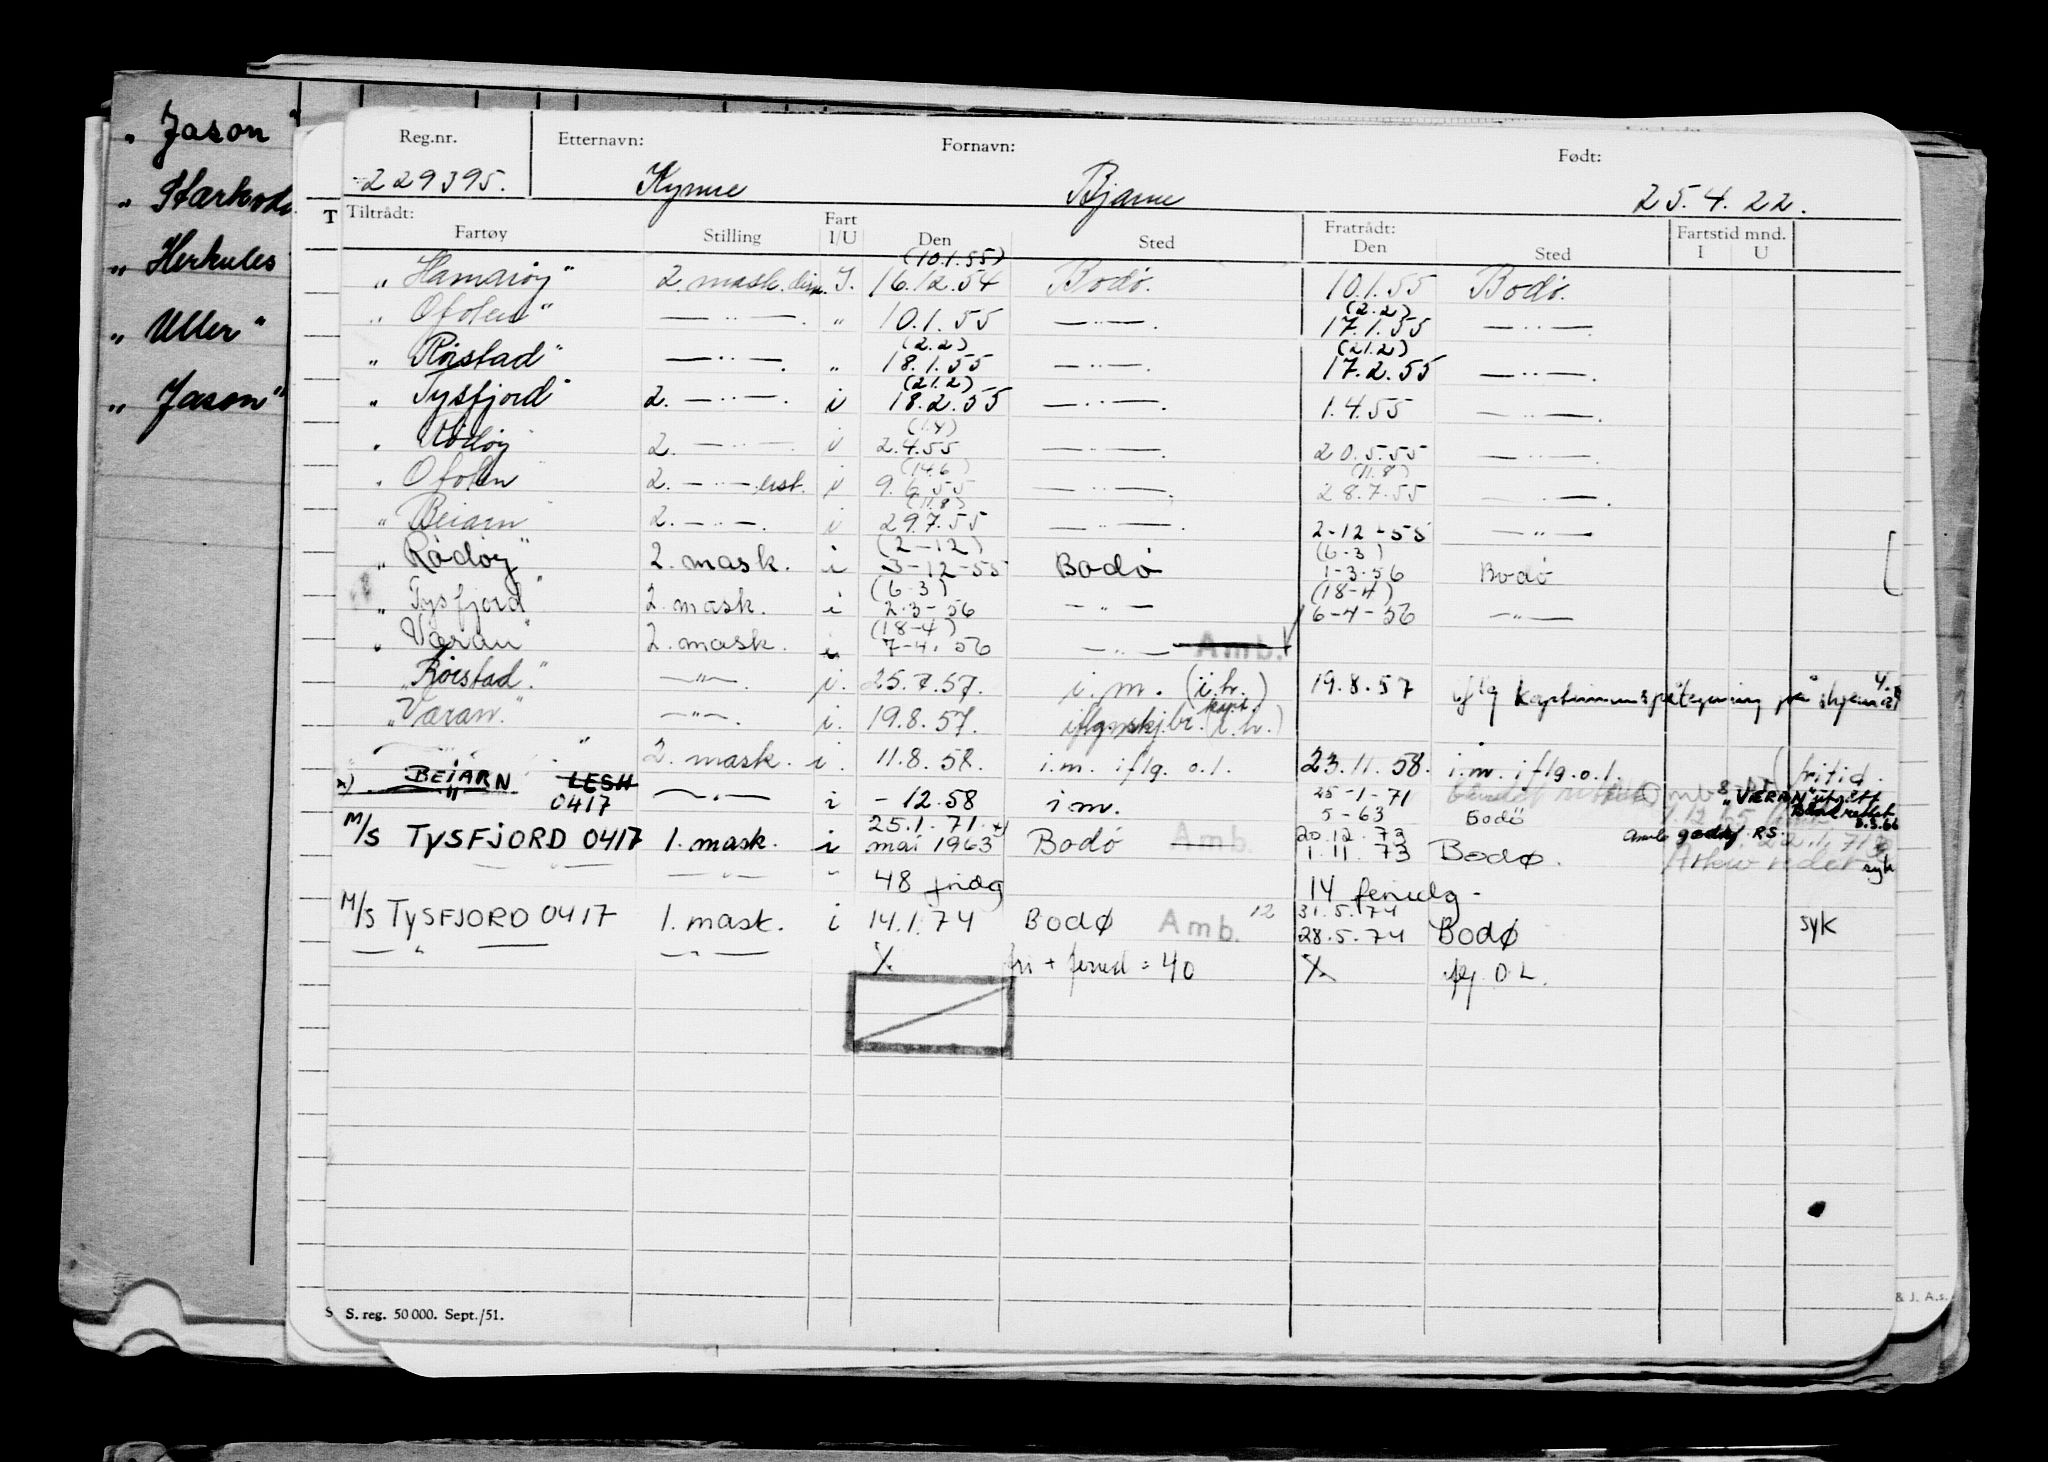 „ Jason"
„ Starkod
„ Herkules
„ Uller"
„ Jason"
Reg.nr. Etternavn: Fornavn: Født:
229395. Kynne Bjarne 25.4.22.
T Tiltrådt: Fart Fratrådt: Fartstid mnd.
Fartøy Stilling I/U Den Sted Den Sted I U
(10.1.55)
„ Hamarøy" 2. mask. I. 16.12.54 Bodø. 10.1.55 Bodø.
(2.2)
„ Ofoten" —"—. " 10.1.55 —"—. 17.1.55 —"—.
(2.2) (21.2)
„ Røistad" —"—. " 18.1.55 —"—. 17.2.55 —"—.
(21.2)
„ Tysfjord" 2. —"—. i 18.2.55 —"—. 1.4.55 —"—.
(1.4)
„ Rødøy 2. —"— i 2.4.55 —"—. 20.5.55 —"—.
(14.6) (11.8)
„ Ofoten 2. —"— i 9.6.55 —"—. 28.7.55 —"—
(11.8)
„ Beiarn" 2. —"—. i 29.7.55 —"—. 2-12-55 —"—
(2-12) (6-3)
„ Rødøy" 2. mask. i 3-12-55 Bodø 1-3-56 Bodø
(6-3) (18-4)
„ Tysfjord" 2. mask. i 2-3-56 —"— 6-4-56 —"—
(18-4)
„ Væran" 2. mask. i 7-4-56 —"— Amb.
„Røistad". —"—. i. 25.7.57. i.m. (i.h.) 19.8.57 iflg kapteinens påtegning på skjema
„Væran". —"—. i. 19.8.57. iflg. mskj. br. (i.h.)
—"— " 2. mask. i. 11.8.58. i.m. iflg. o.l. 23.11.58. i.m. iflg. o.l. (fritid.
x) BEIARN LESH —"— i - 12.58 i m. 25-1-71
0417 5-63 Bodø
"VÆRAN" utgått
25.1.71 x)
M/S TYSFJORD 0417 1. mask. i mai 1963 Bodø Amb. 20.12.73 Amb. godkj RS.
—"— —"— " 1.11.73 Bodø. syk
48 fridg 14 feriedg -
M/S TYSFJORD 0417 1. mask. i 14.1.74 Bodø Amb. 12 31.5.74 syk
—"— —"— 28.5.74 Bodø
fri + feried = 40 O L.
S S. reg. 50 000. Sept./51.
& J. A.s.